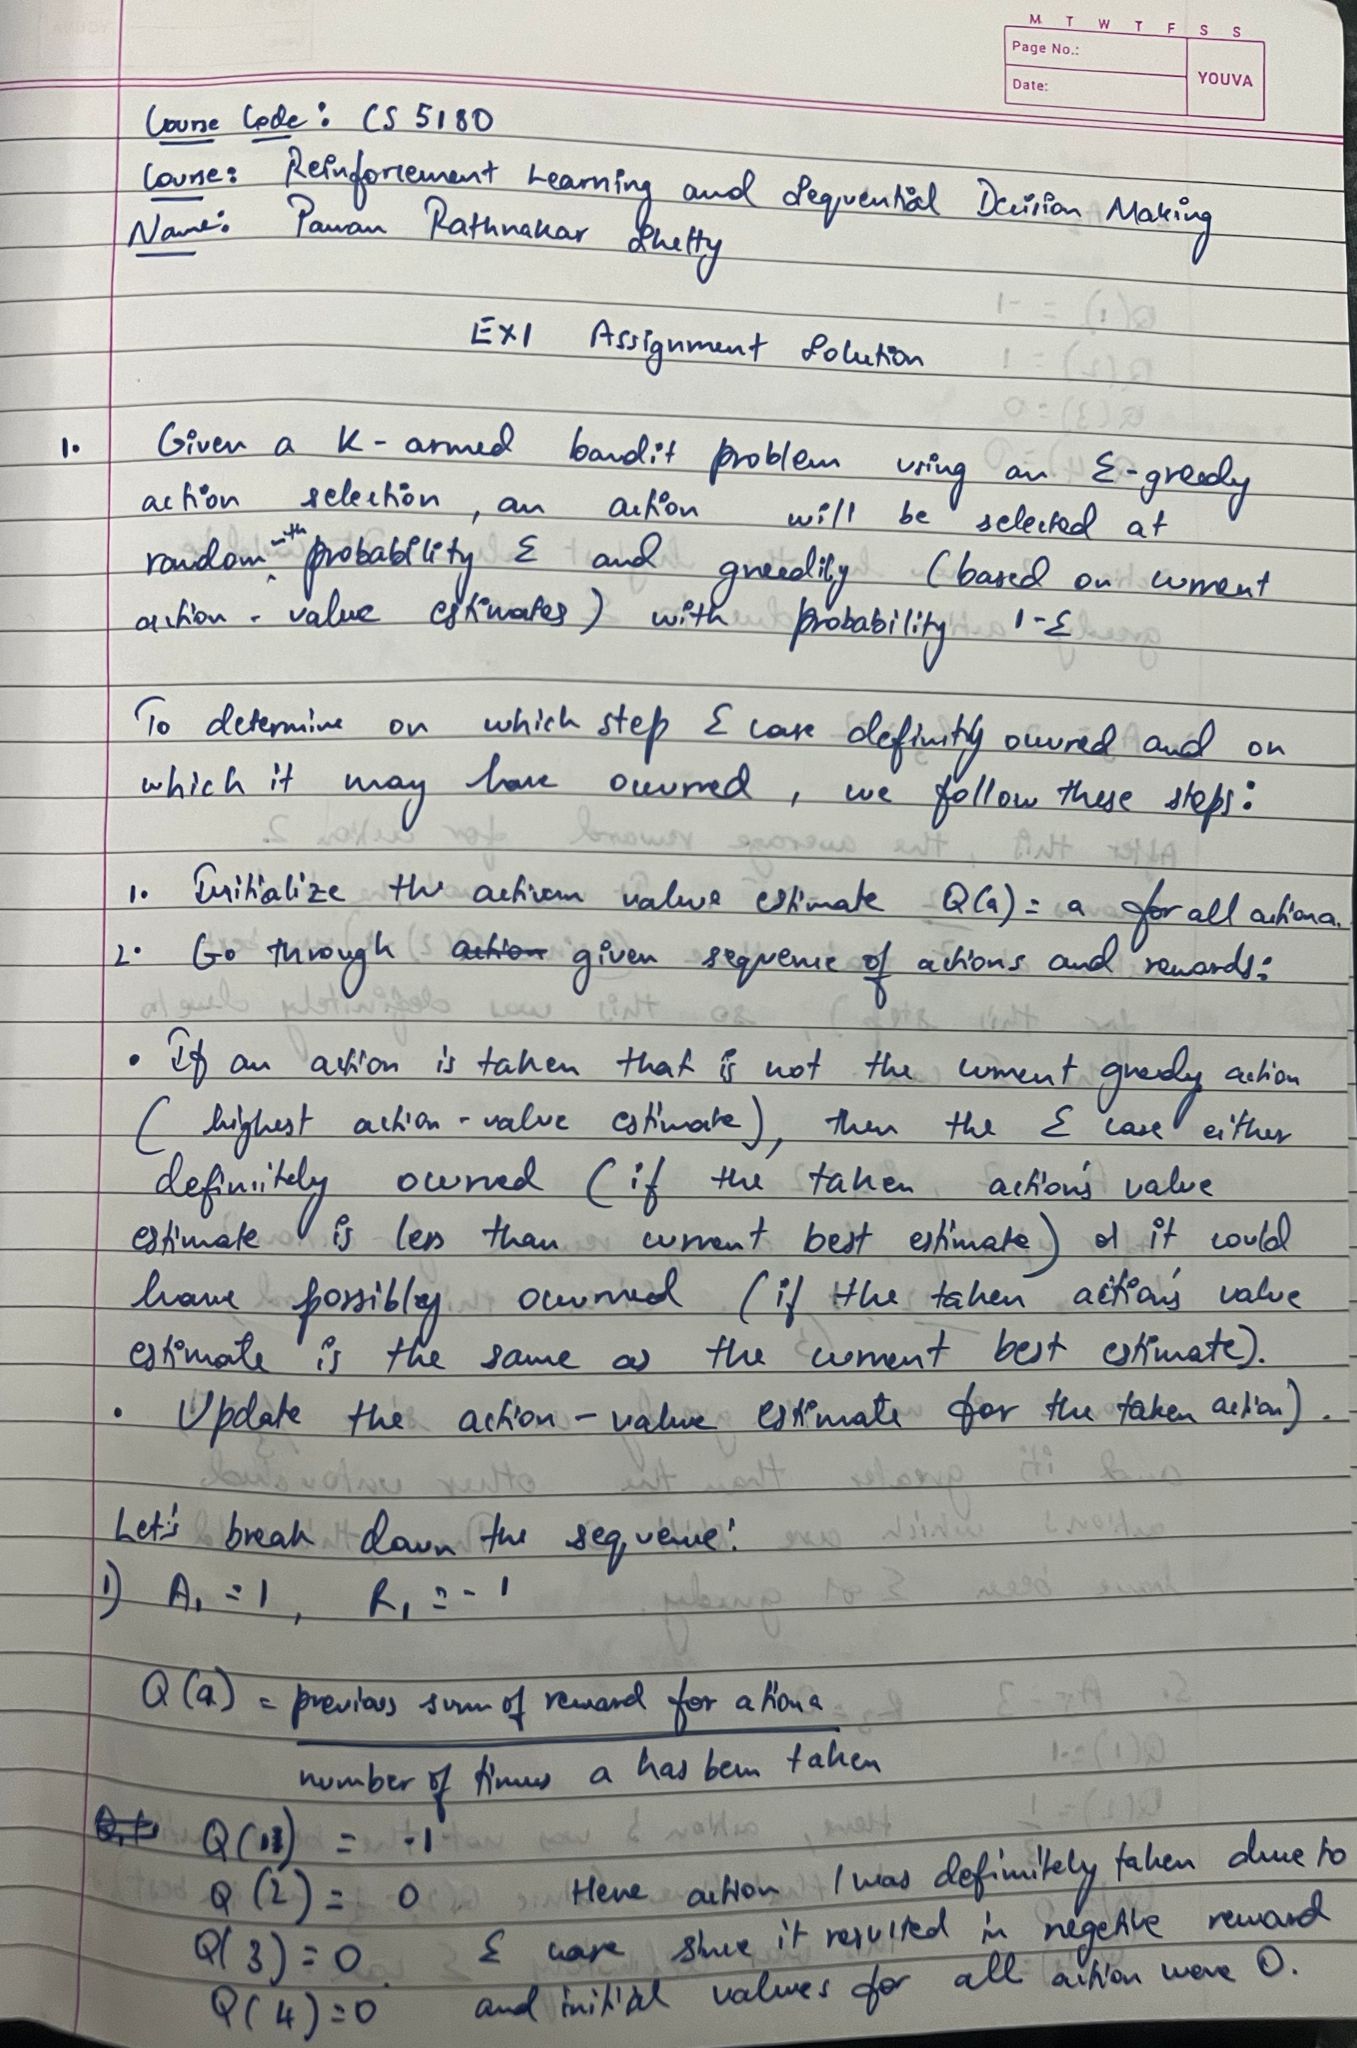 M T W T F S S
Page No.:
YOUVA
Date:
Course Code: CS 5180
Course: Reinforcement Learning and Sequential Decision Making
Name: Pawan Rathnakar Shetty
EX1 Assignment Solution
1. Given a K-armed bandit problem using an ε-greedy
action selection, an action will be selected at
random with probability ε and greedily (based on current
action-value estimates) with probability 1-ε
To determine on which step ε case definitly occured and on
which it may have occurred, we follow these steps:
1. Initialize the action value estimate Q(a) = a for all action a.
2. Go through action given sequence of actions and rewards:
• If an action is taken that is not the current greedy action
(highest action-value estimate), then the ε case either
definitely occurred (if the taken action's value
estimate is less than current best estimate) or it could
have possibly occurred (if the taken action's value
estimate is the same as the current best estimate).
• Update the action-value estimate for the taken action).
Let's break down the sequence:
1) A₁ = 1, R₁ = -1
Q(a) = previous sum of reward for action a
number of times a has been taken
Q(1) = -1
Q(2) = 0 Here action 1 was definitely taken due to
Q(3) = 0 ε case since it resulted in negetive reward
Q(4) = 0 and initial values for all action were 0.